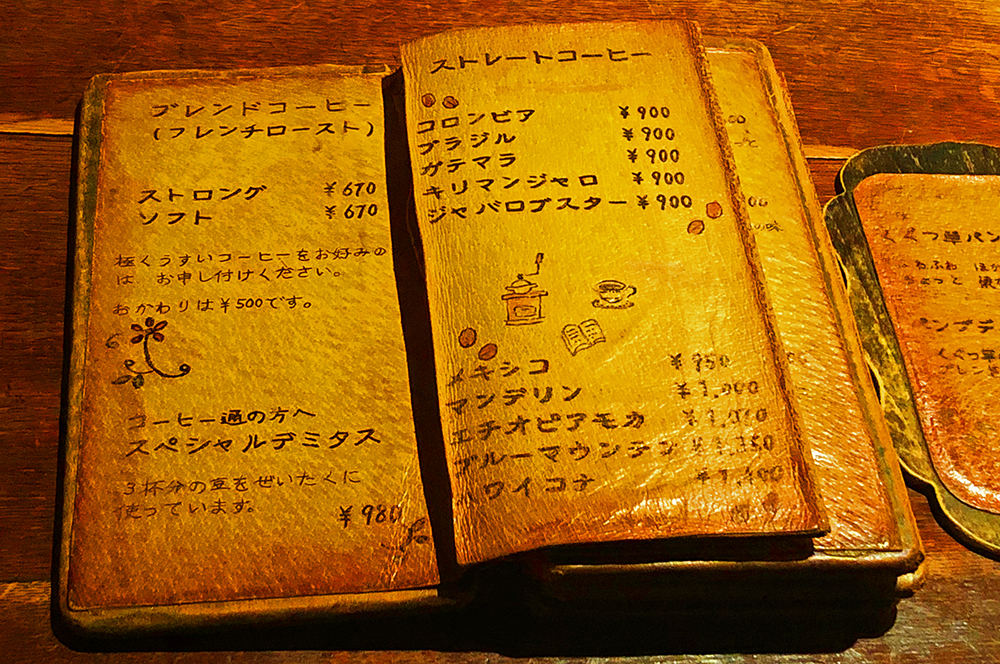 ブレンドコーヒー
(フレンチロースト)
ストロング ¥670
ソフト ¥670
極くうすいコーヒーをお好みの
は、お申し付けください。
おかわりは¥500です。
コーヒー通の方へ
スペシャルデミタス
3杯分の豆をぜいたくに
使っています。
¥980
ストレートコーヒー
コロンビア ¥900
ブラジル ¥900
ガテマラ ¥900
キリマンジャロ ¥900
ジャバロブスター ¥900
メキシコ ¥950
マンデリン ¥1,000
エチオピアモカ
ブルーマウンテン
ワイコナ
の味
くつ単パン